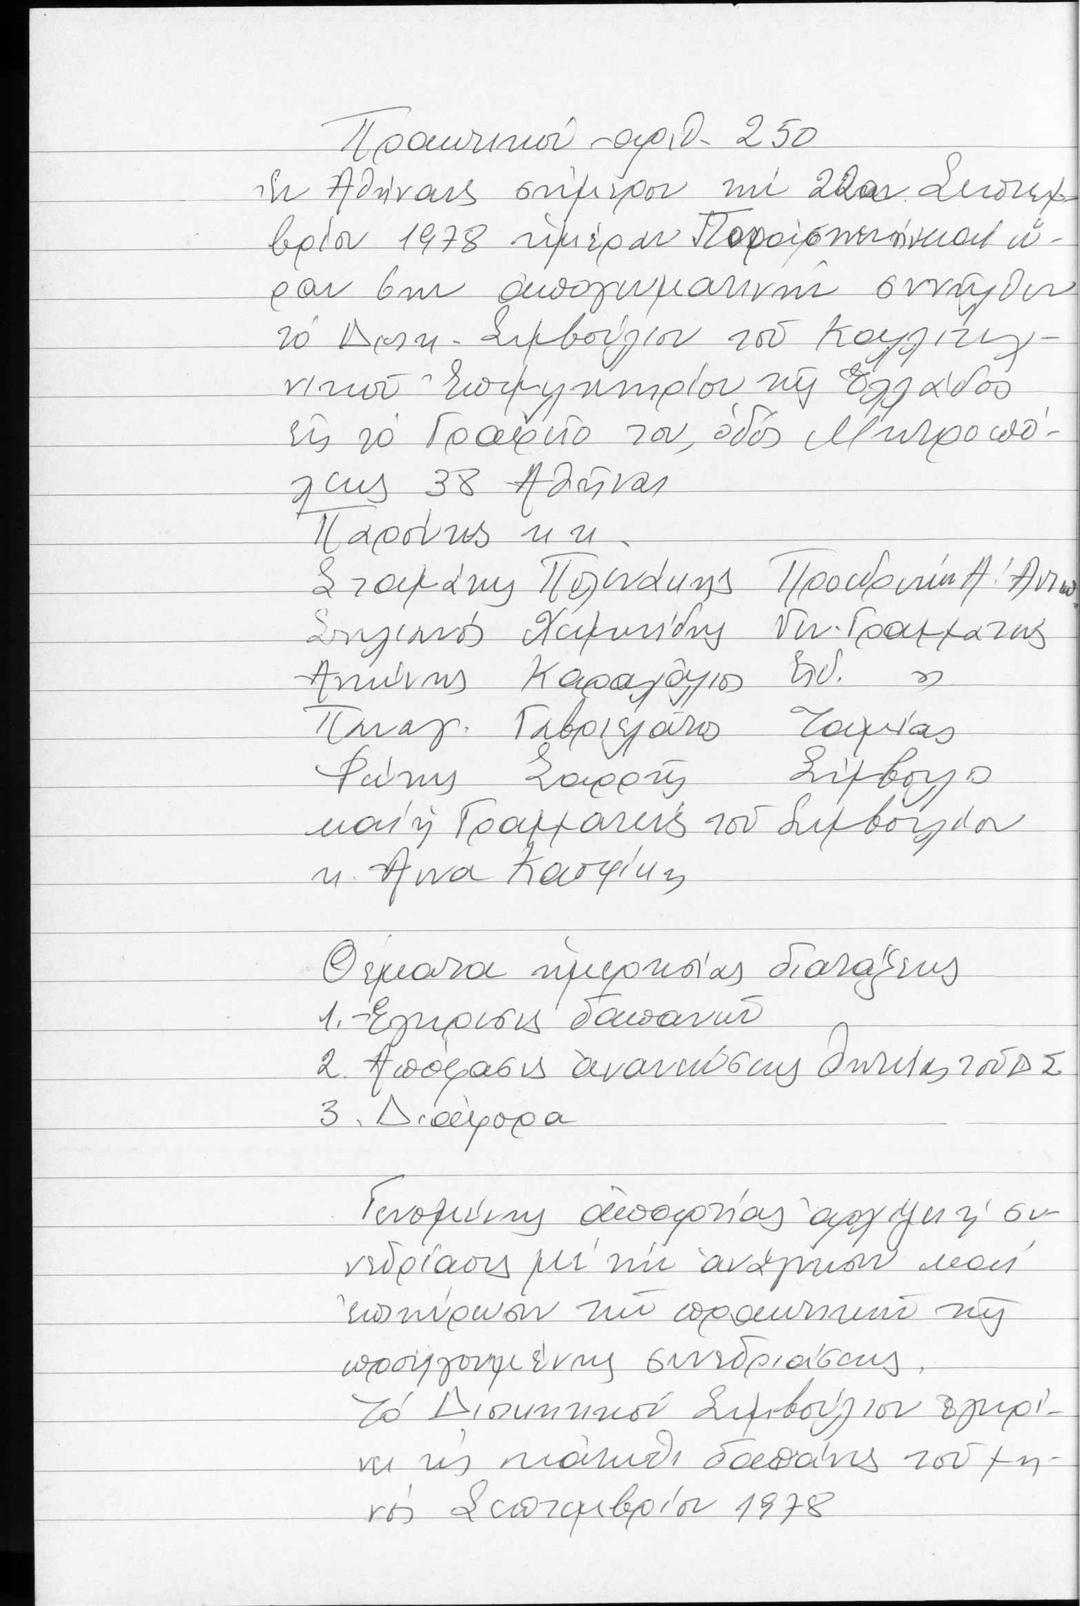 Πρακτικόν ἀριθ. 250
Ἐν Ἀθήναις σήμερον τήν 22αν Σεπτεμ-
βρίου 1978 ἡμέραν Παρασκευήν καί ὥ-
ραν 6ην ἀπογευματινήν συνῆλθεν
τό Διοικ. Συμβούλιον τοῦ Καλλιτεχ-
νικοῦ Ἐπιμελητηρίου τῆς Ἑλλάδος
εἰς τό Γραφεῖο του, ὁδός Μητροπό-
λεως 38 Ἀθῆναι
Παρόντες κ κ.
Σταμάτης Πολενάκης Προεδρεύων Α! Ἀντιπ.
Στυλιανός Γεν. Γραμματεύς
Ἀντώνης Καραχάλιος Εἰδ. "
Παναγ. Γαβριελᾶτος Ταμίας
Φώτης Σαρρῆς Σύμβουλος
καί ἡ Γραμματεύς τοῦ Συμβουλίου
κ. Ἄννα Κασφίκη
Θέματα ἡμερησίας διατάξεως
1. Ἔγκρισις δαπανῶν
2. Ἀπόφασις ἀνανεώσεως θητείας τοῦ Δ Σ
3. Διάφορα
Γενομένης ἀπαρτίας ἀρχίζει ἡ συ-
νεδρίασις μέ τήν ἀνάγνωσιν καί
ἐπικύρωσιν τῶν πρακτικῶν τῆς
προηγουμένης συνεδριάσεως.
Τό Διοικητικόν Συμβούλιον ἐγκρί-
νει τίς κάτωθι δαπάνες τοῦ μη-
νός Σεπτεμβρίου 1978